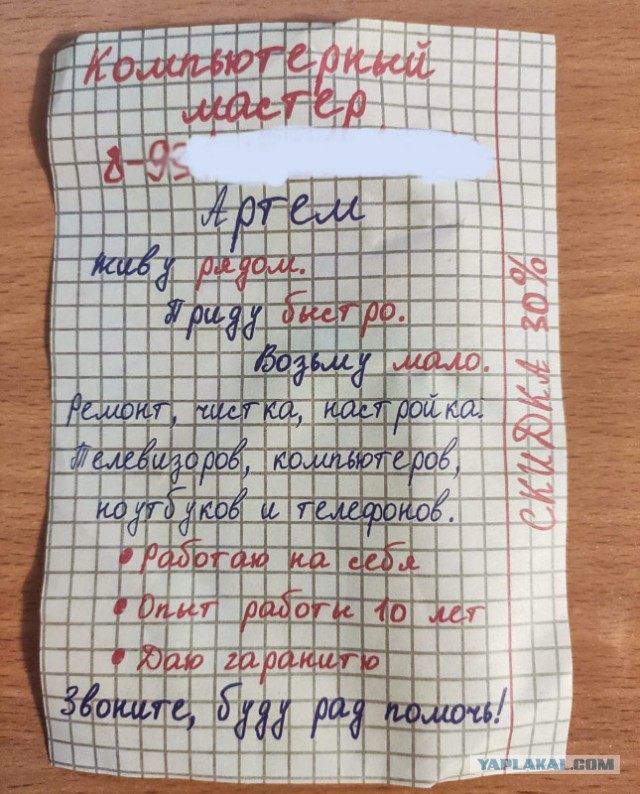 Компьютерный
мастер
8-93
Артем
живу рядом.
Приду быстро.
Возьму мало.
Ремонт, чистка, настройка.
Телевизоров, компьютеров,
ноутбуков и телефонов.
• Работаю на себя
• Опыт работы 10 лет
• Даю гаранитю
Звоните, буду рад помочь!
СКИДКА 30%
YAPLAKAL.COM